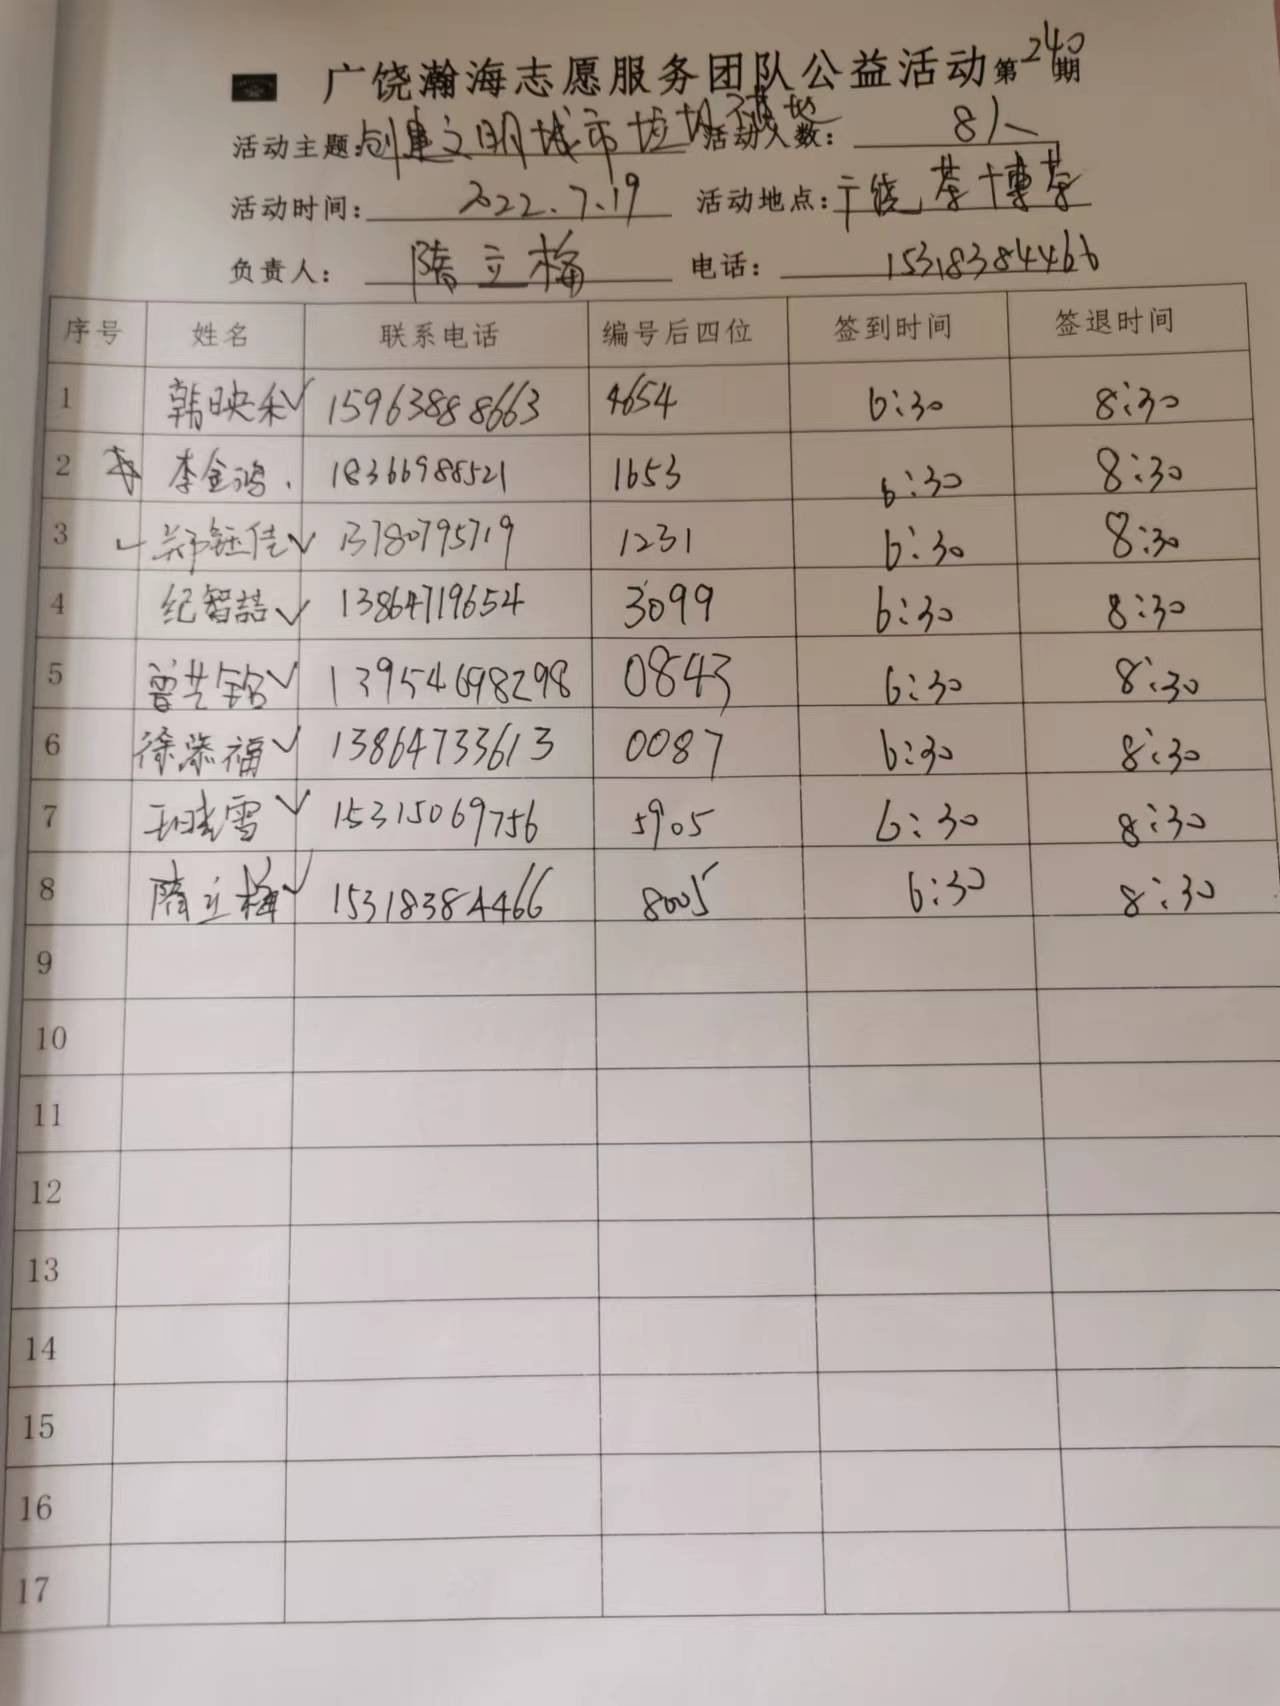 广饶瀚海志愿服务团队公益活动第240期
活动主题:创建文明城市垃圾 落地 活动人数: 8人
活动时间: 2022.7.19 活动地点:广饶
负责人: 隋立梅 电话: 15318384466
序号 姓名 联系电话 编号后四位 签到时间 签退时间
1 韩映禾✓ 15963888663 4654 6:30 8:30
2 李金鸿. 18366988521 1653 6:30 8:30
3 ✓ 郑钰佳✓ 13780795719 1231 6:30 8:30
4 纪智喆✓ 13864719654 3099 6:30 8:30
5 曾艺铭✓ 13954698298 0843 6:30 8:30
6 徐添福✓ 13864733613 0087 6:30 8:30
7 雪✓ 15315069756 5905 6:30 8:30
8 隋立梅✓ 15318384466 8005 6:30 8:30
9
10
11
12
13
14
15
16
17